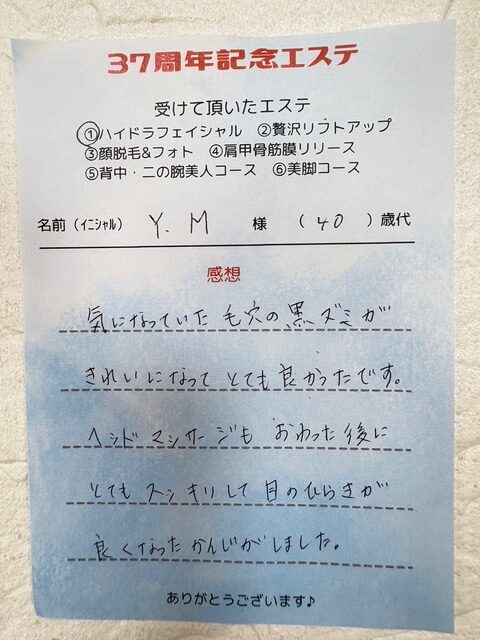 37周年記念エステ
受けて頂いたエステ
①ハイドラフェイシャル ②贅沢リフトアップ
③顔脱毛&フォト ④肩甲骨筋膜リリース
⑤背中・二の腕美人コース ⑥美脚コース
名前(イニシャル) Y.M 様 (40)歳代
感想
気になっていた毛穴の黒ズミが
きれいになってとても良かったです。
ヘッドマッサージもおわった後に
とてもスッキリして目のひらきが
良くなったかんじがしました。
ありがとうございます♪